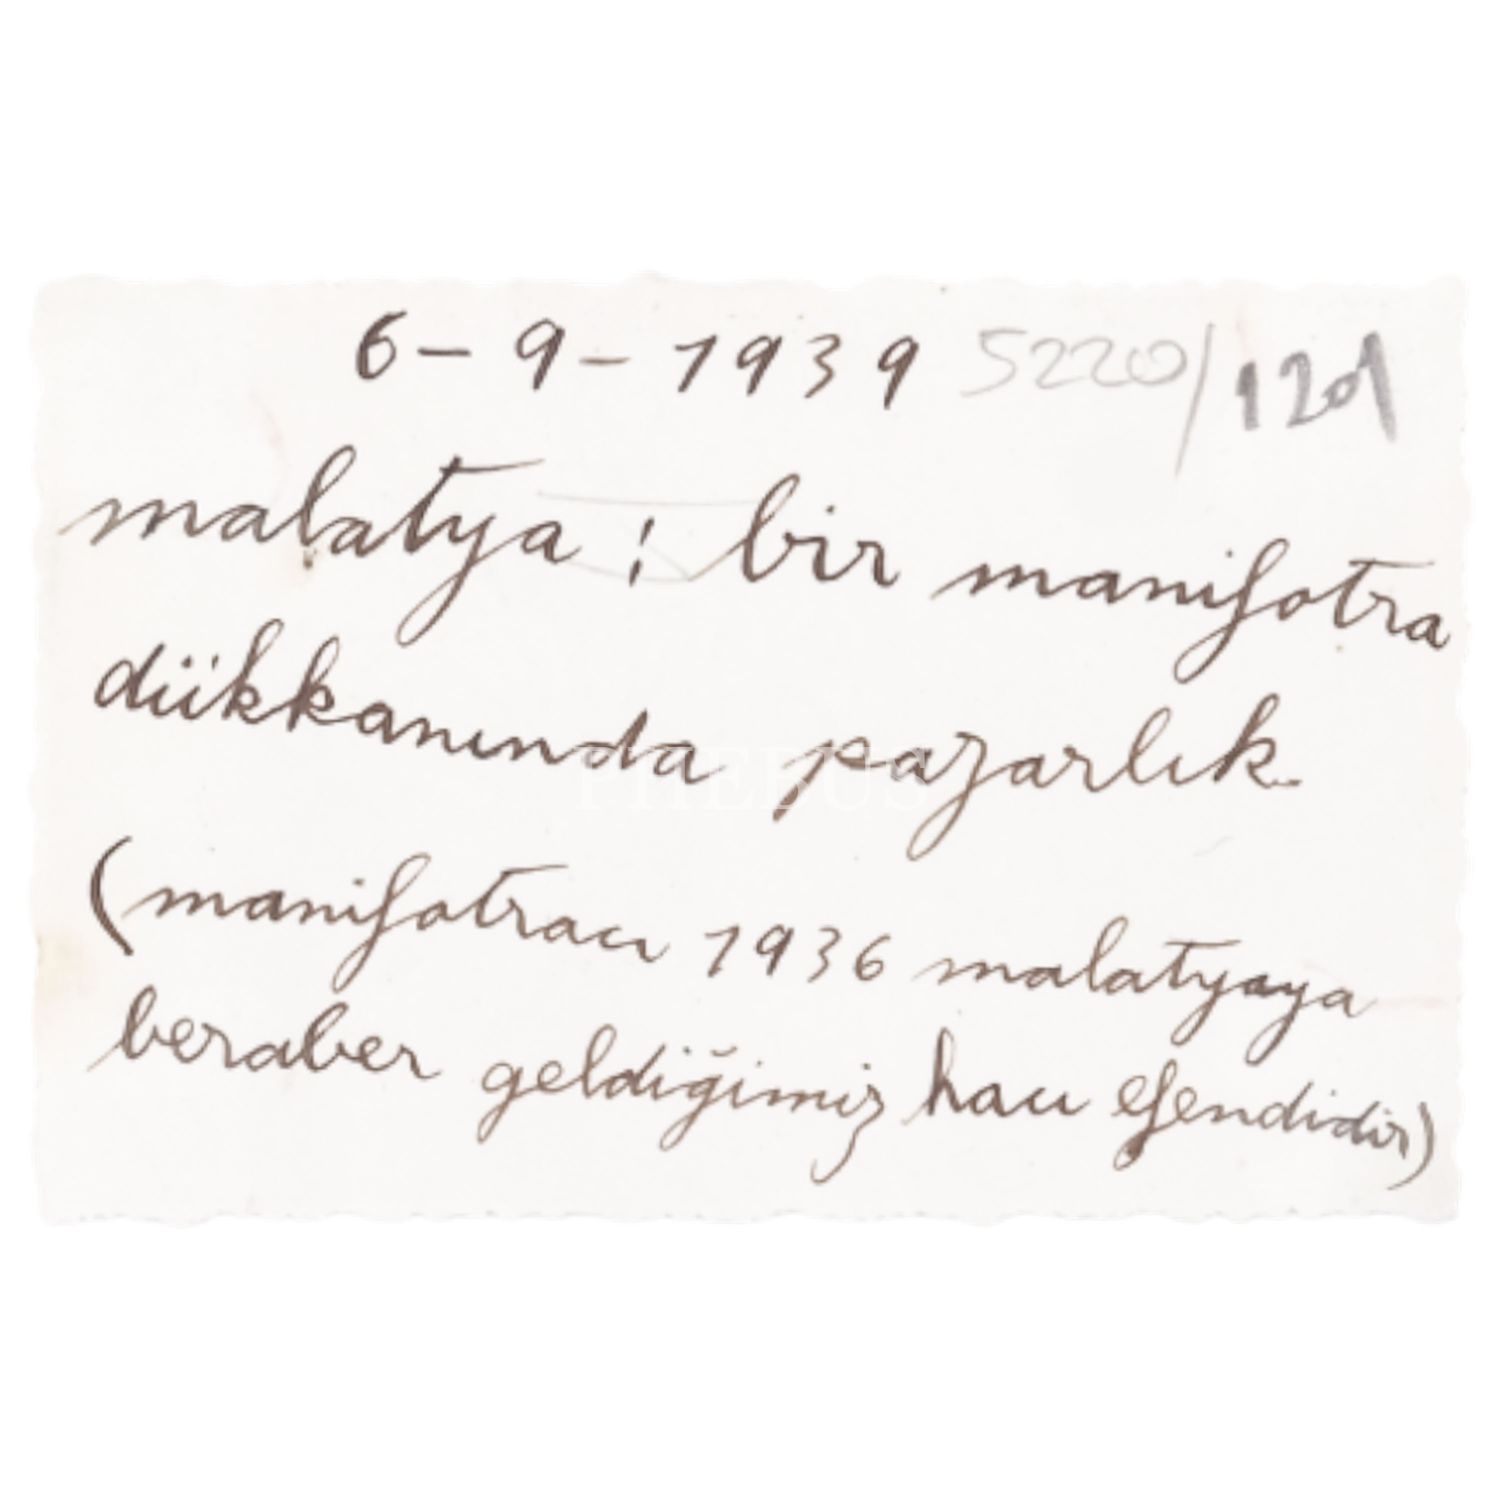 6-9-1939 5220/1201
malatya: bir manifotra
dükkanında pazarlık
PHEBUS
(manifotracı 1936 malatyaya
beraber geldiğimiz hacı efendidir)